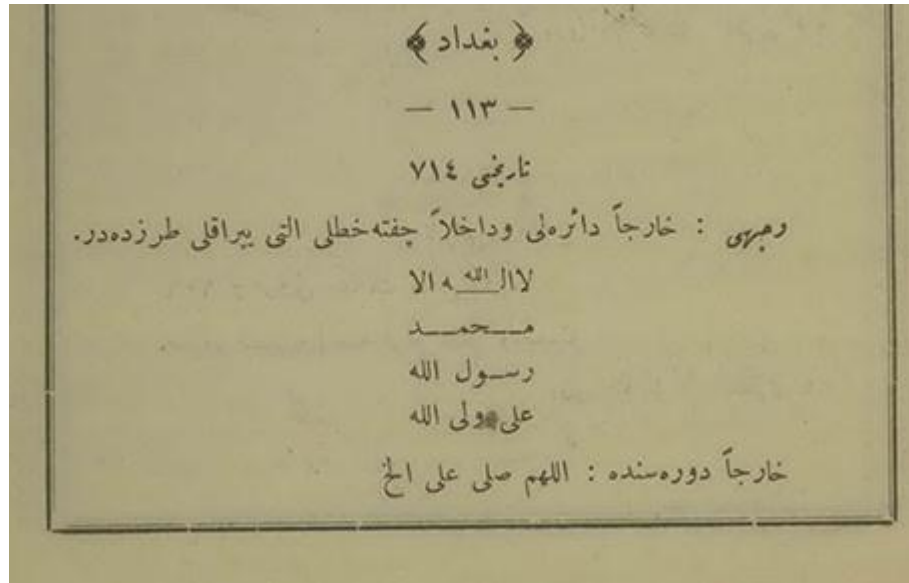 ﴿ بغداد ﴾
— ١١٣ —
تاريخى ٧١٤
وجهى : خارجاً دائره‌لى وداخلاً چفته‌خطلى التى يپراقلى طرزده‌در.
لاالــه الا الله
مــحمــد
رســول الله
على ولى الله
خارجاً دوره‌سنده : اللهم صلى على الخ